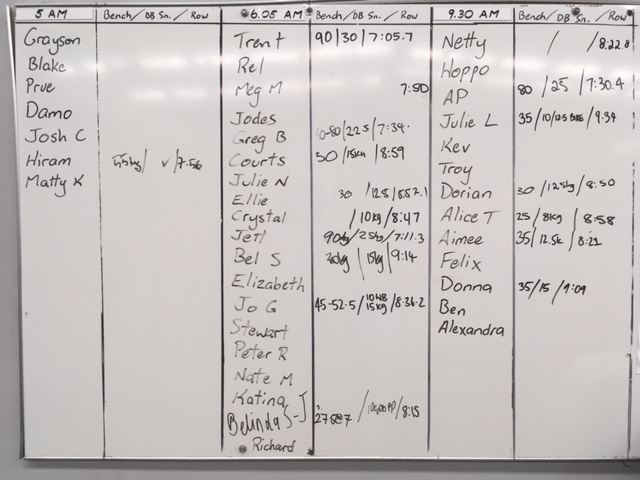 5 AM Bench/DB Sn./Row
Grayson
Blake
Prue
Damo
Josh C
Hiram / v/7:56
Matty K
6.05 AM Bench/DB Sn./Row
Trent 90/30/7:05.7
Rel
Meg M 7:50
Jodes
Greg B /22.5/7:34.
Courts 50/15kg/8:59
Julie N
Ellie 30 /12.5/8:52.1
Crystal /10kg/8:47
Jett 90kg/25kg/7:11.3
Bel S 30kg/15kg/9:14
Elizabeth
Jo G 45-52.5/10 15kg/8:34.2
Stewart
Peter R
Nate M
Katina
Belinda S-J /8:15
Richard
9.30 AM Bench/DB Sn./Row
Netty / /8:22.8
Hoppo
AP 80 /25 /7:30.4
Julie L 35/10/ /9:34
Kev
Troy
Dorian 30 /12.5kg/8:50
Alice T 25/8kg/8:58
Aimee 35/12.5k/8:21
Felix
Donna 35/15/9:09
Ben
Alexandra